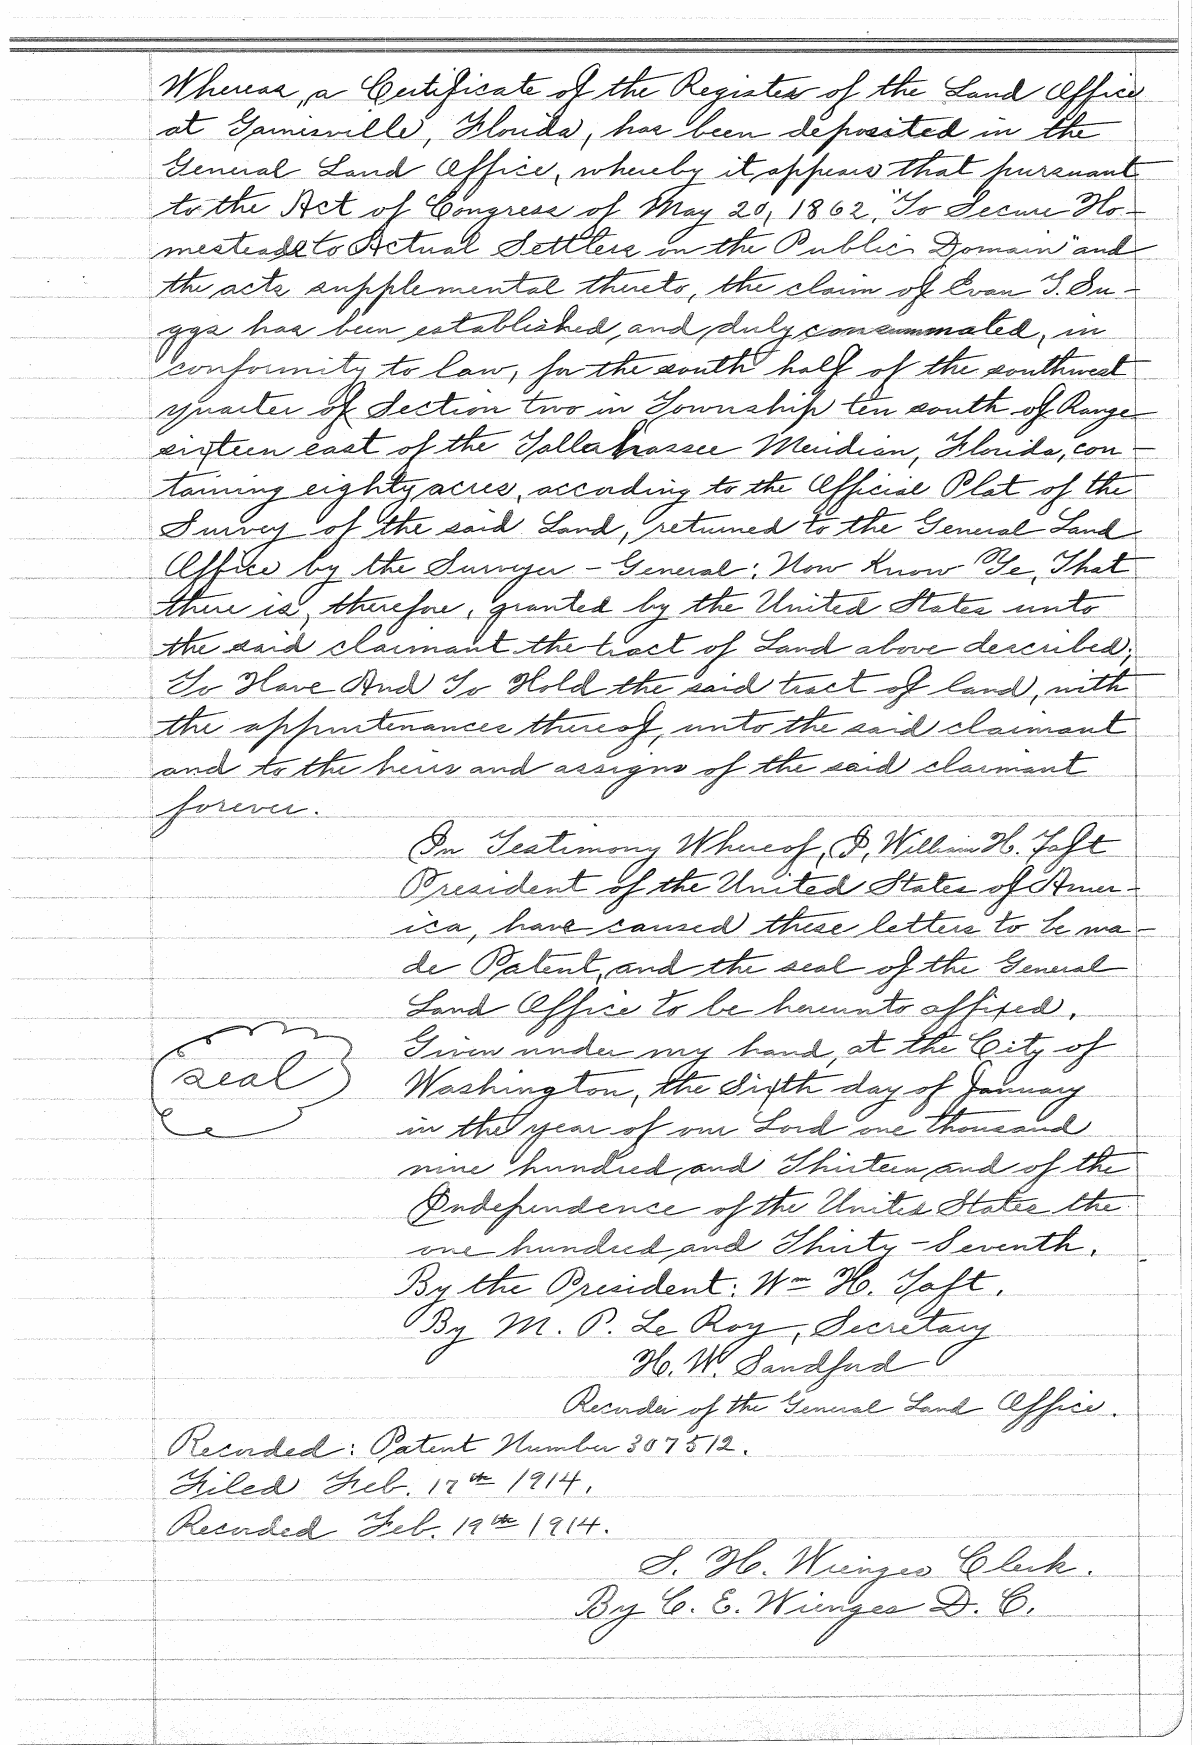 Whereas, a Certificate of the Register of the Land Office
at Gainisville, Florida, has been deposited in the
General Land Office, whereby it appears that pursuant
to the Act of Congress of May 20, 1862, "To Secure Ho-
mesteads to Actual Settlers on the Public Domain" and
the acts supplemental thereto, the claim of Evan T. Su-
ggs has been established, and duly consummated, in
conformity to law, for the south half of the southwest
quarter of Section two in Township ten south of Range
sixteen east of the Tallahassee Meridian, Florida, con-
taining eighty acres, according to the Official Plat of the
Survey of the said Land, returned to the General Land
Office by the Surveyer-General: Now Know Ye, That
there is, therefore, granted by the United States unto
the said claimant the tract of Land above described;
To Have And To Hold the said tract of land, with
the appurtenances thereof, unto the said claimant
and to the heirs and assigns of the said claimant
forever.
In Testimony Whereof, I, William H. Taft
President of the United States of Amer-
ica, have caused these letters to be ma-
de Patent, and the seal of the General
Land Office to be hereunto affixed.
Given under my hand, at the City of
seal
Washington, the Sixth day of January
in the year of our Lord one thousand
nine hundred and Thirteen and of the
Independence of the United States the
one hundred and Thirty-Seventh.
By the President: Wm H. Taft.
By M. P. Le Roy, Secretary
H. W. Sandford
Recorder of the General Land Office.
Recorded: Patent Number 307512.
Filed Feb. 17th 1914.
Recorded Feb. 19th 1914.
S. H. Wienges Clerk.
By C. E. Wienges D. C.